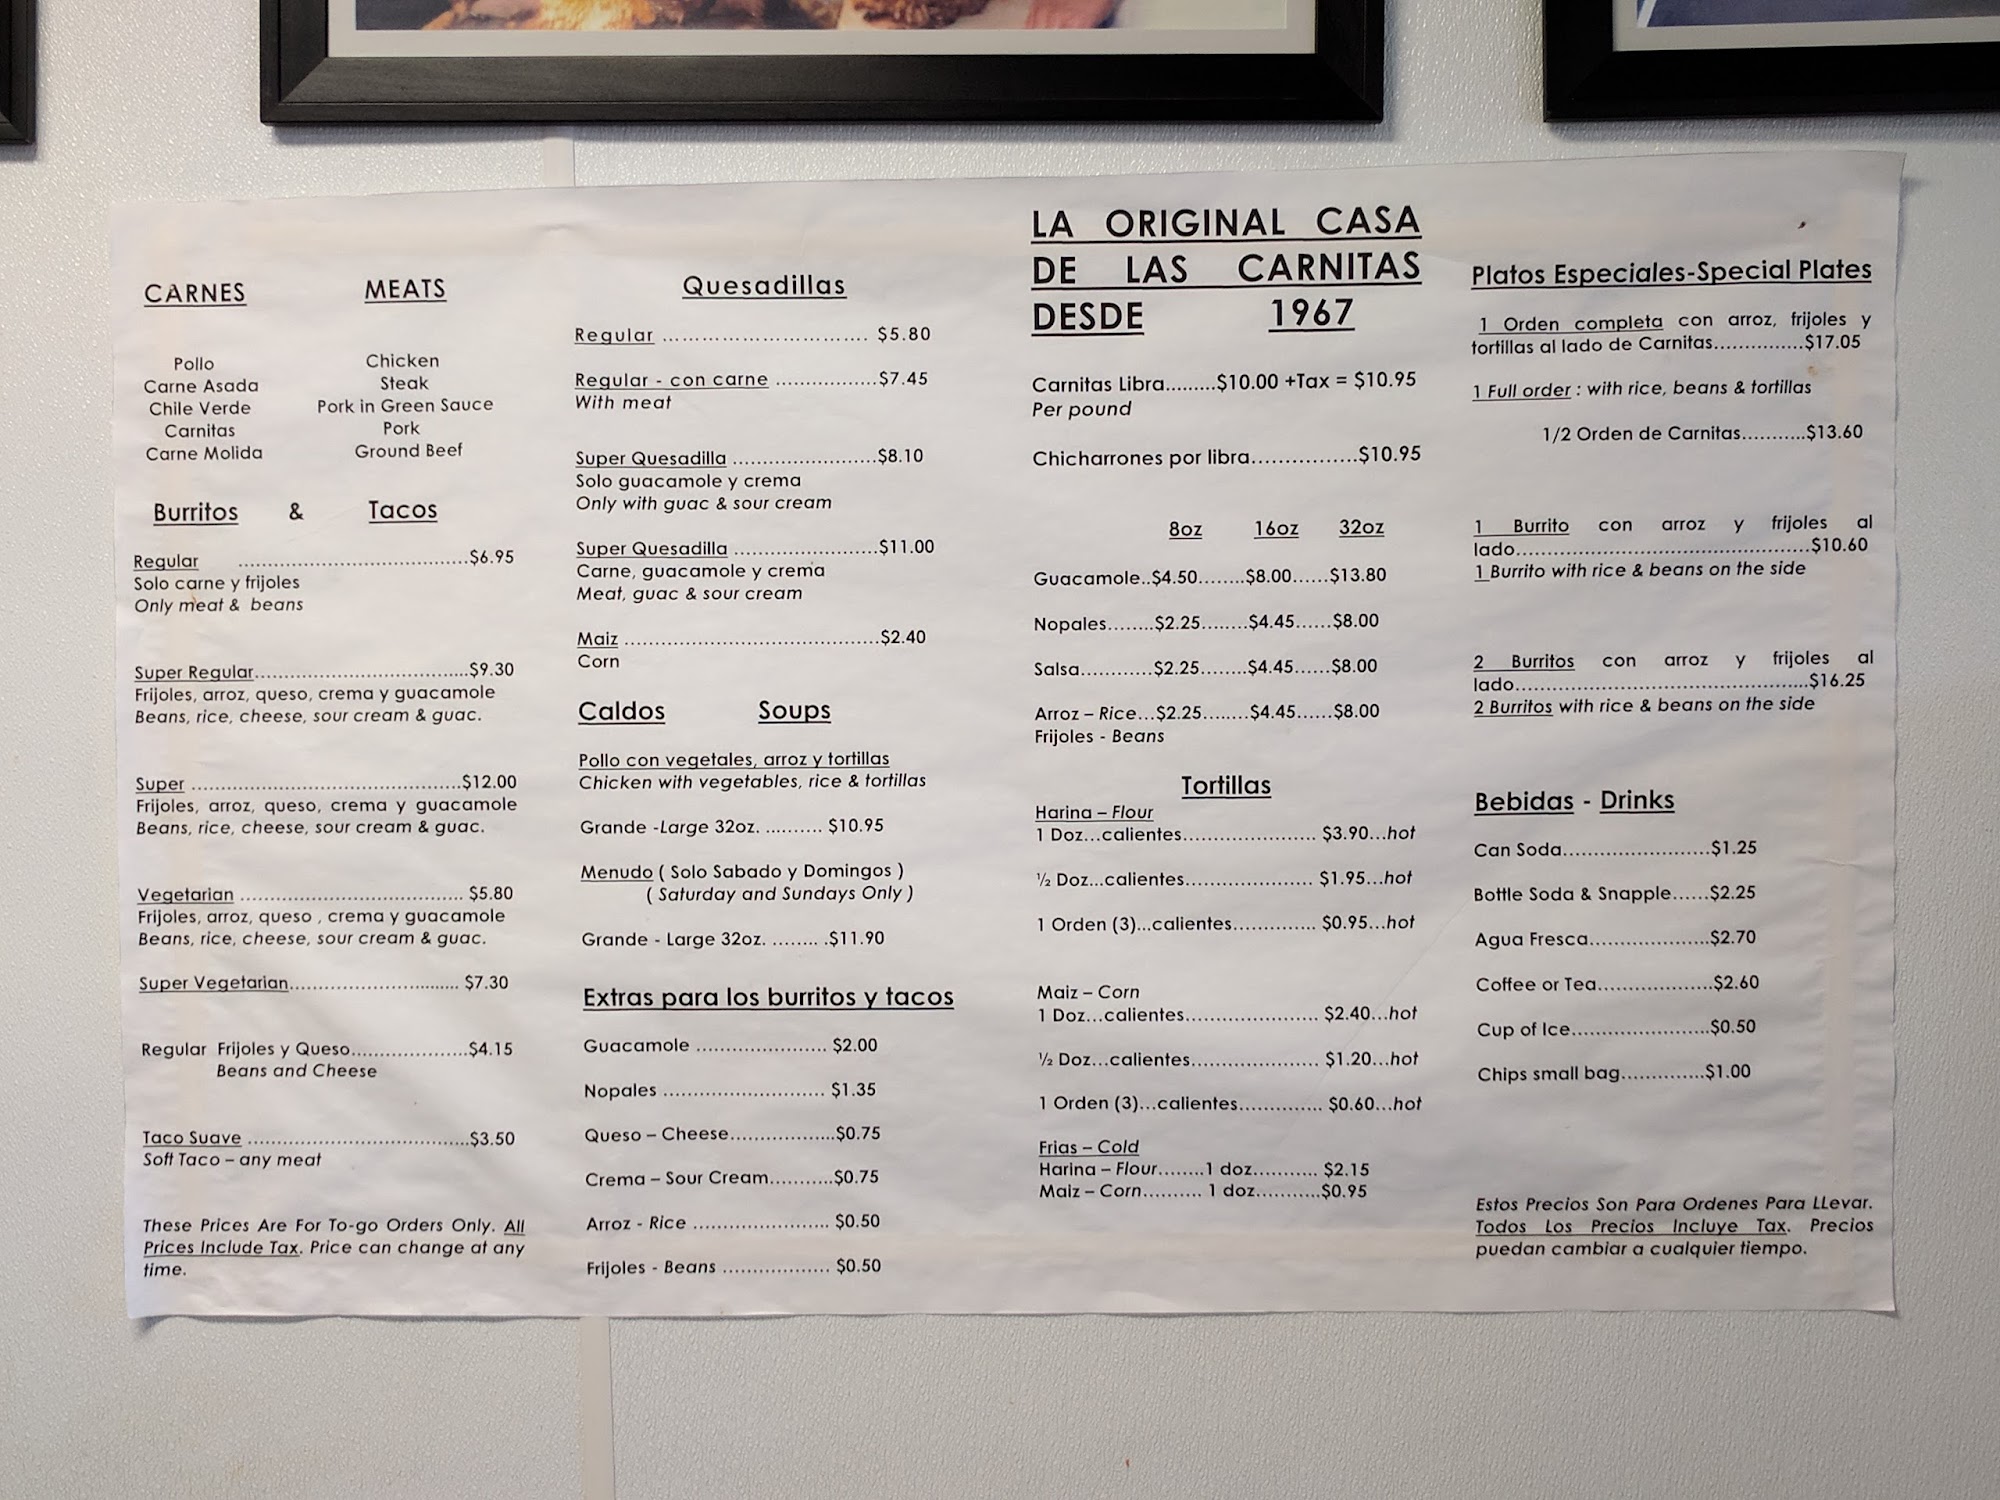 CARNES MEATS
Pollo Chicken
Carne Asada Steak
Chile Verde Pork in Green Sauce
Carnitas Pork
Carne Molida Ground Beef
Burritos & Tacos
Regular ........................................$6.95
Solo carne y frijoles
Only meat & beans
Super Regular.......................................$9.30
Frijoles, arroz, queso, crema y guacamole
Beans, rice, cheese, sour cream & guac.
Super ...............................................$12.00
Frijoles, arroz, queso, crema y guacamole
Beans, rice, cheese, sour cream & guac.
Vegetarian ....................................... $5.80
Frijoles, arroz, queso , crema y guacamole
Beans, rice, cheese, sour cream & guac.
Super Vegetarian............................... $7.30
Regular Frijoles y Queso....................$4.15
Beans and Cheese
Taco Suave .......................................$3.50
Soft Taco – any meat
These Prices Are For To-go Orders Only. All
Prices Include Tax. Price can change at any
time.
Quesadillas
Regular ................................. $5.80
Regular - con carne .................$7.45
With meat
Super Quesadilla .........................$8.10
Solo guacamole y crema
Only with guac & sour cream
Super Quesadilla .........................$11.00
Carne, guacamole y crema
Meat, guac & sour cream
Maiz ............................................$2.40
Corn
Caldos Soups
Pollo con vegetales, arroz y tortillas
Chicken with vegetables, rice & tortillas
Grande -Large 32oz. .......... $10.95
Menudo ( Solo Sabado y Domingos )
( Saturday and Sundays Only )
Grande - Large 32oz. ........ .$11.90
Extras para los burritos y tacos
Guacamole ....................... $2.00
Nopales ............................ $1.35
Queso – Cheese..................$0.75
Crema – Sour Cream...........$0.75
Arroz - Rice ........................ $0.50
Frijoles - Beans ................... $0.50
LA ORIGINAL CASA
DE LAS CARNITAS
DESDE 1967
Carnitas Libra.........$10.00 +Tax = $10.95
Per pound
Chicharrones por libra.................$10.95
8oz 16oz 32oz
Guacamole..$4.50........$8.00......$13.80
Nopales........$2.25........$4.45......$8.00
Salsa............$2.25........$4.45......$8.00
Arroz – Rice...$2.25........$4.45......$8.00
Frijoles - Beans
Tortillas
Harina – Flour
1 Doz...calientes....................... $3.90...hot
½ Doz...calientes...................... $1.95...hot
1 Orden (3)...calientes.............. $0.95...hot
Maiz – Corn
1 Doz...calientes....................... $2.40...hot
½ Doz...calientes...................... $1.20...hot
1 Orden (3)...calientes.............. $0.60...hot
Frias – Cold
Harina – Flour........1 doz........... $2.15
Maiz – Corn.......... 1 doz...........$0.95
Platos Especiales-Special Plates
1 Orden completa con arroz, frijoles y
tortillas al lado de Carnitas...............$17.05
1 Full order : with rice, beans & tortillas
1/2 Orden de Carnitas...........$13.60
1 Burrito con arroz y frijoles al
lado..................................................$10.60
1 Burrito with rice & beans on the side
2 Burritos con arroz y frijoles al
lado..................................................$16.25
2 Burritos with rice & beans on the side
Bebidas - Drinks
Can Soda.........................$1.25
Bottle Soda & Snapple......$2.25
Agua Fresca.....................$2.70
Coffee or Tea....................$2.60
Cup of Ice........................$0.50
Chips small bag..............$1.00
Estos Precios Son Para Ordenes Para LLevar.
Todos Los Precios Incluye Tax. Precios
puedan cambiar a cualquier tiempo.